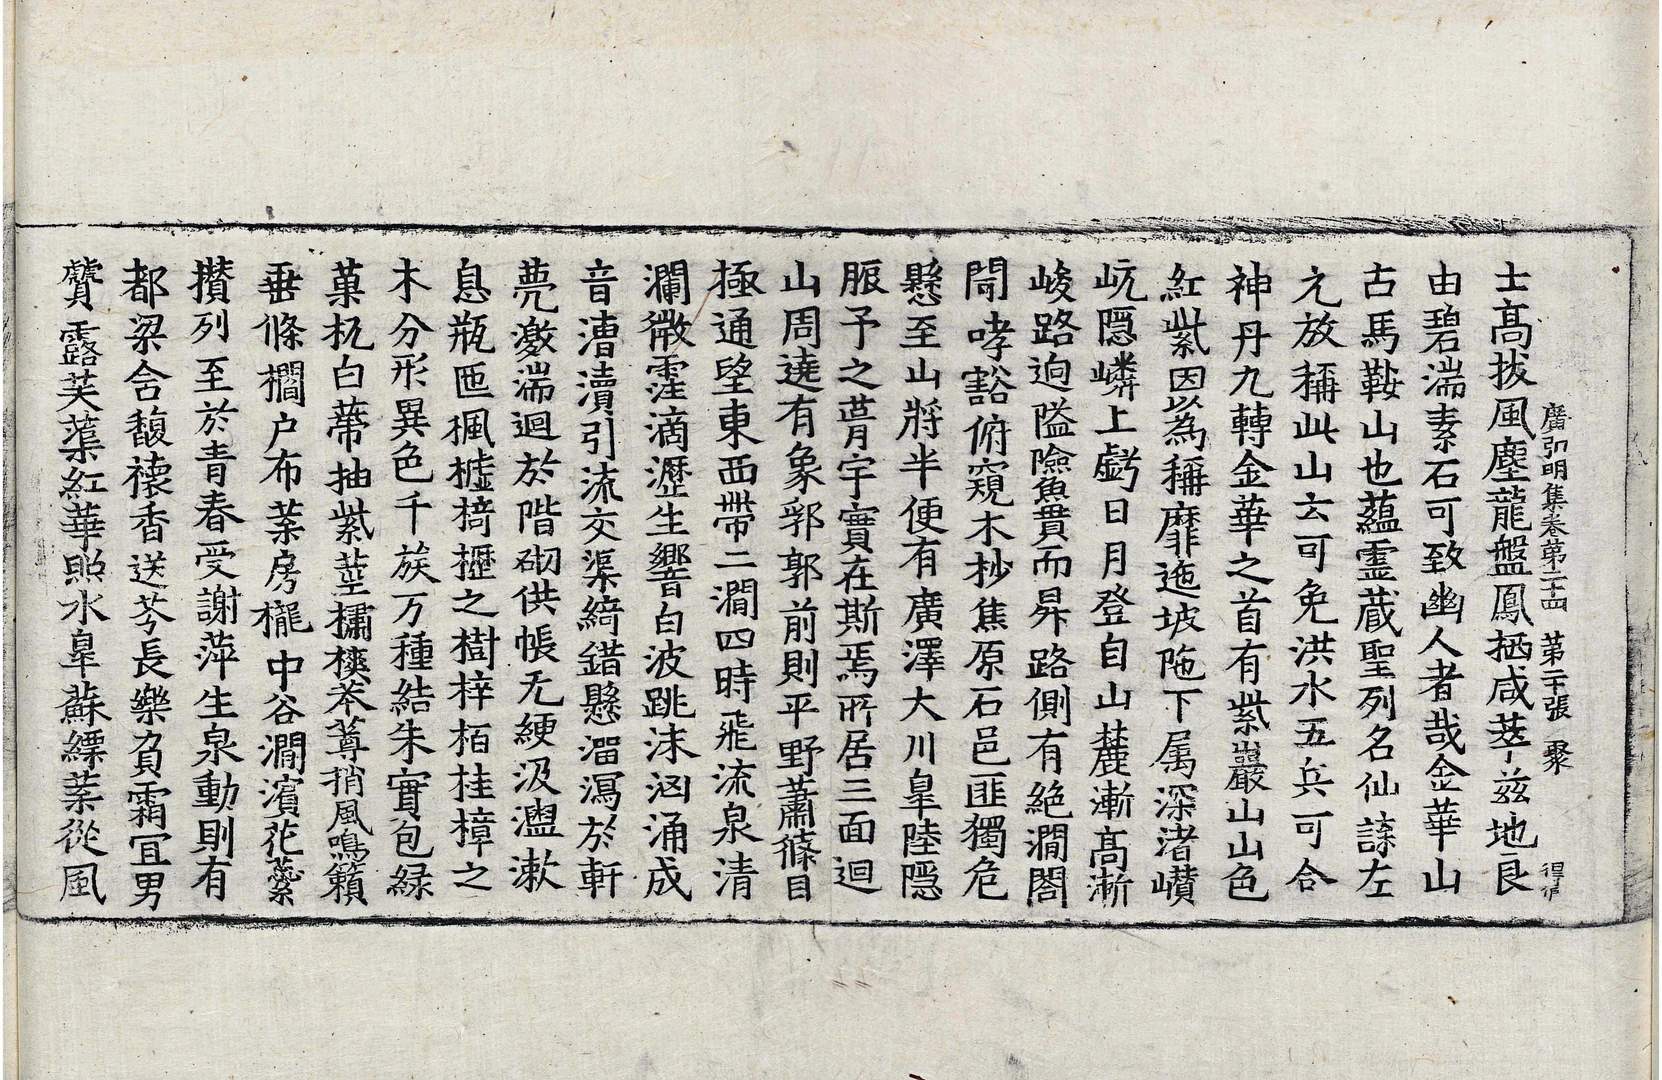 廣弘明集卷第二十四 第二十張 聚
士髙拔風塵龍盤鳳栖咸萃兹地良
由碧湍素石可致幽人者哉金華山
古馬鞍山也蘊靈蔵聖列名仙諜左
元放稱此山云可免洪水五兵可合
神丹九轉金華之首有紫巖山山色
紅紫因以為稱靡迤坡陁下属深渚巑
岏隱嶙上虧日月登自山麓漸髙漸
峻路迫隘險魚貫而昇路側有絶澗閤
閜哮豁俯窺木杪焦原石邑匪獨危
懸至山將半便有廣澤大川皐陸隱
脤予之葺宇實在斯焉所居三面迴
山周遶有象郛郭前則平野蕭條目
極通望東西帶二澗四時飛流泉清
瀾微霔滴瀝生響白波跳沫洶涌成
音漕瀆引流交渠綺錯懸溜瀉於軒
甍激湍迴於階砌供帳无綆汲盥漱
息瓶匜楓櫨椅櫪之樹梓栢桂樟之
木分形異色千族万種結朱實包緑
菓杌白蔕抽紫莖橚楧苯䔿捎風鳴籟
垂條櫩户布葉房櫳中谷澗濱花蘂
攅列至於青春受謝萍生泉動則有
都梁含馥懐香送芬長樂負霜冝男
贙露芙蕖紅華照水皐蘇縹葉從風